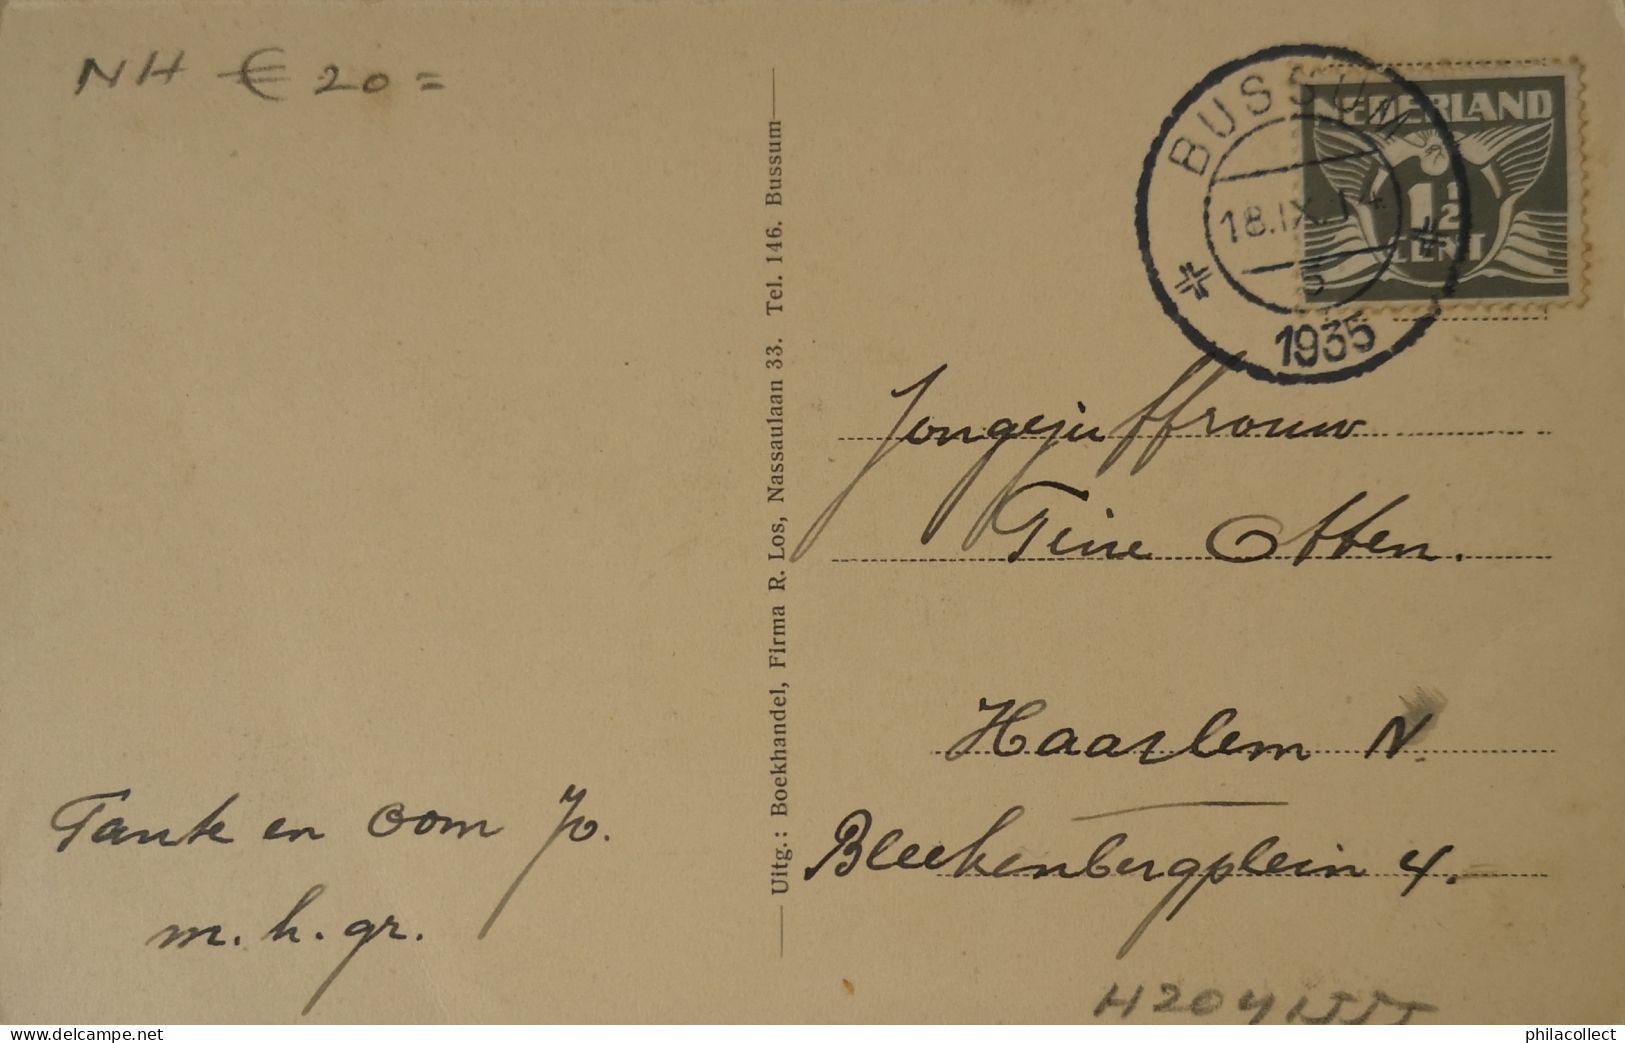 NH € 20 =
BUSSUM
18.IX.14
5
1935
NEDERLAND
1½
CENT
Jongejuffrouw
Tine Otten.
Haarlem N.
Bleekenbergplein 4.
Tante en oom Jo.
m. h. gr.
Uitg.: Boekhandel, Firma R. Los, Nassaulaan 33. Tel. 146. Bussum
www.delcampe.net
philacollect